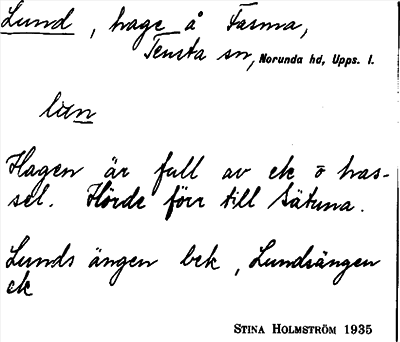 Lund, hage å Fasma,
Tensta sn, Norunda hd, Upps. l.
lun
Hagen är full av ek o has-
sel. Hörde förr till Sätuna.
Lunds ängen bek, Lundsängen
ek
STINA HOLMSTRÖM 1935